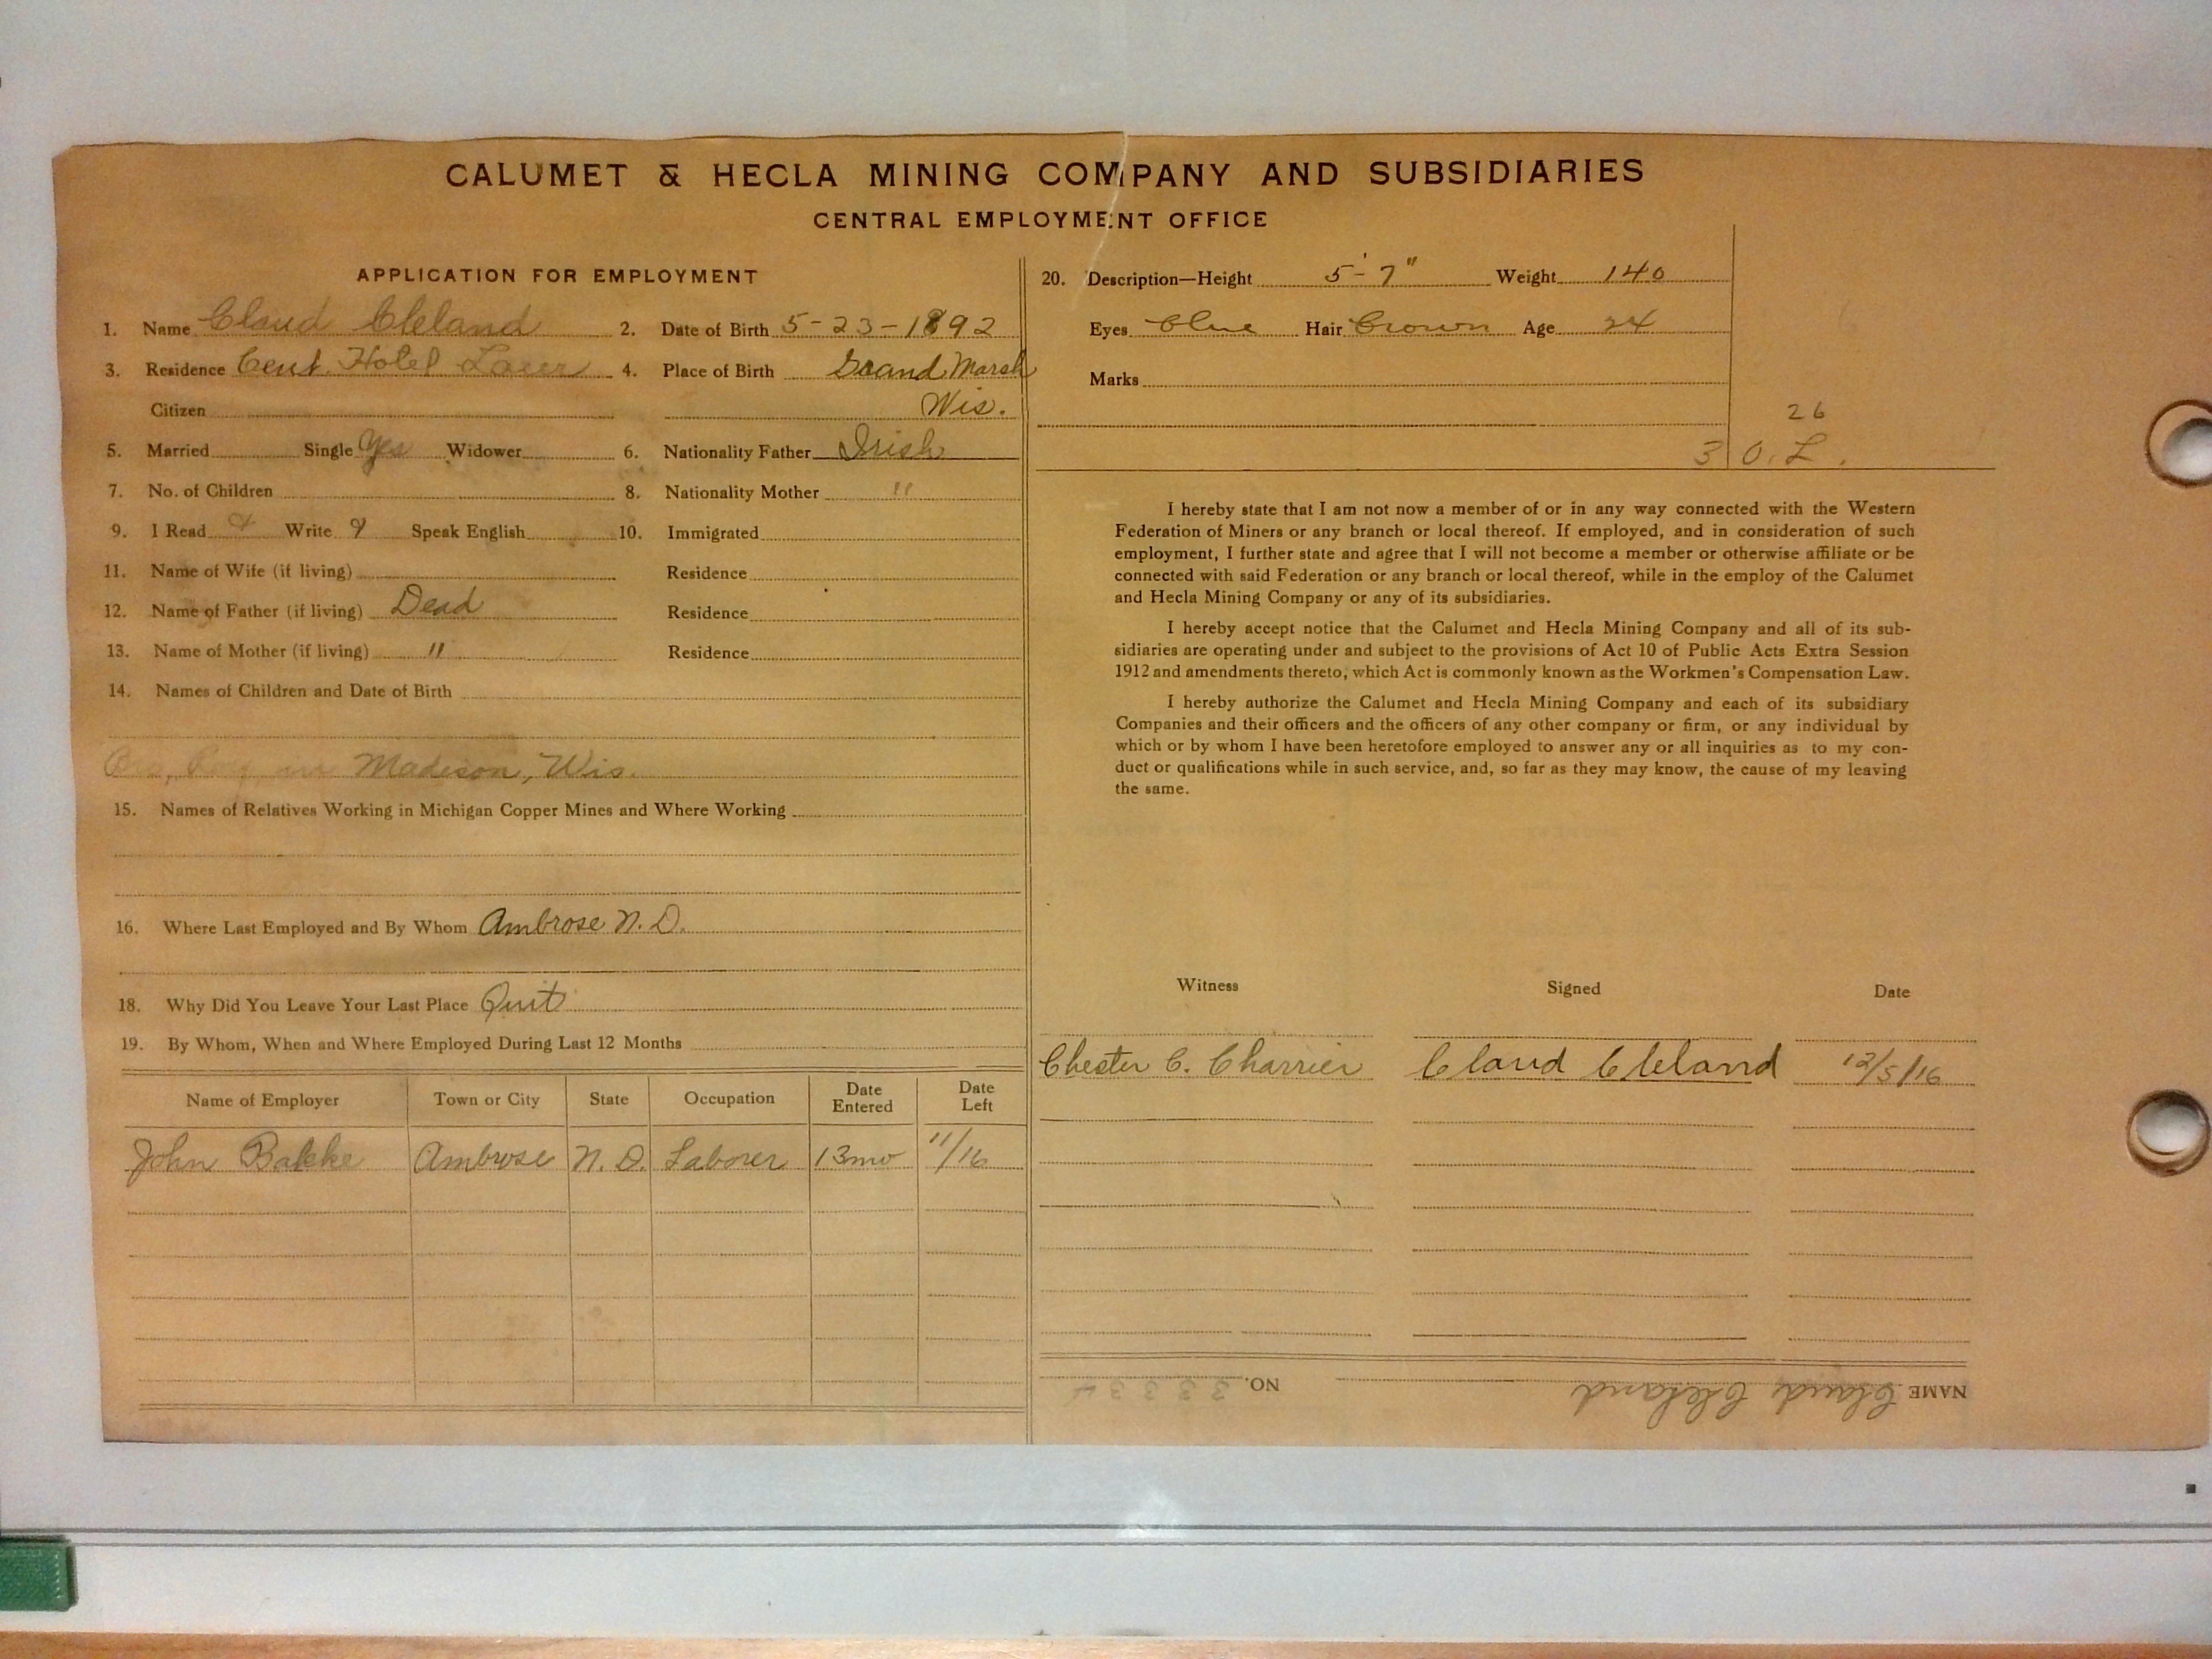 CALUMET & HECLA MINING COMPANY AND SUBSIDIARIES
CENTRAL EMPLOYMENT OFFICE
APPLICATION FOR EMPLOYMENT
1. Name Claud Cleland 2. Date of Birth 5-23-1892
3. Residence Cent. Hotel 4. Place of Birth Grand Marsh
Citizen Wis.
5. Married Single Yes Widower 6. Nationality Father Irish
7. No. of Children 8. Nationality Mother "
9. I Read Y Write Y Speak English 10. Immigrated
11. Name of Wife (if living) Residence
12. Name of Father (if living) Dead Residence
13. Name of Mother (if living) " Residence
14. Names of Children and Date of Birth
Bro, Roy, in Madison, Wis.
15. Names of Relatives Working in Michigan Copper Mines and Where Working
16. Where Last Employed and By Whom Ambrose N. D.
18. Why Did You Leave Your Last Place Quit
19. By Whom, When and Where Employed During Last 12 Months
Name of Employer Town or City State Occupation Date Entered Date Left
John Bakke Ambrose N. D. Laborer 13mo 11/16
20. Description—Height 5'-7" Weight 140
Eyes Blue Hair Brown Age 24
Marks
26
3 O. L.
I hereby state that I am not now a member of or in any way connected with the Western
Federation of Miners or any branch or local thereof. If employed, and in consideration of such
employment, I further state and agree that I will not become a member or otherwise affiliate or be
connected with said Federation or any branch or local thereof, while in the employ of the Calumet
and Hecla Mining Company or any of its subsidiaries.
I hereby accept notice that the Calumet and Hecla Mining Company and all of its sub-
sidiaries are operating under and subject to the provisions of Act 10 of Public Acts Extra Session
1912 and amendments thereto, which Act is commonly known as the Workmen's Compensation Law.
I hereby authorize the Calumet and Hecla Mining Company and each of its subsidiary
Companies and their officers and the officers of any other company or firm, or any individual by
which or by whom I have been heretofore employed to answer any or all inquiries as to my con-
duct or qualifications while in such service, and, so far as they may know, the cause of my leaving
the same.
Witness Signed Date
Chester C. Charrier Claud Cleland 12/5/16
NAME Claud Cleland NO.